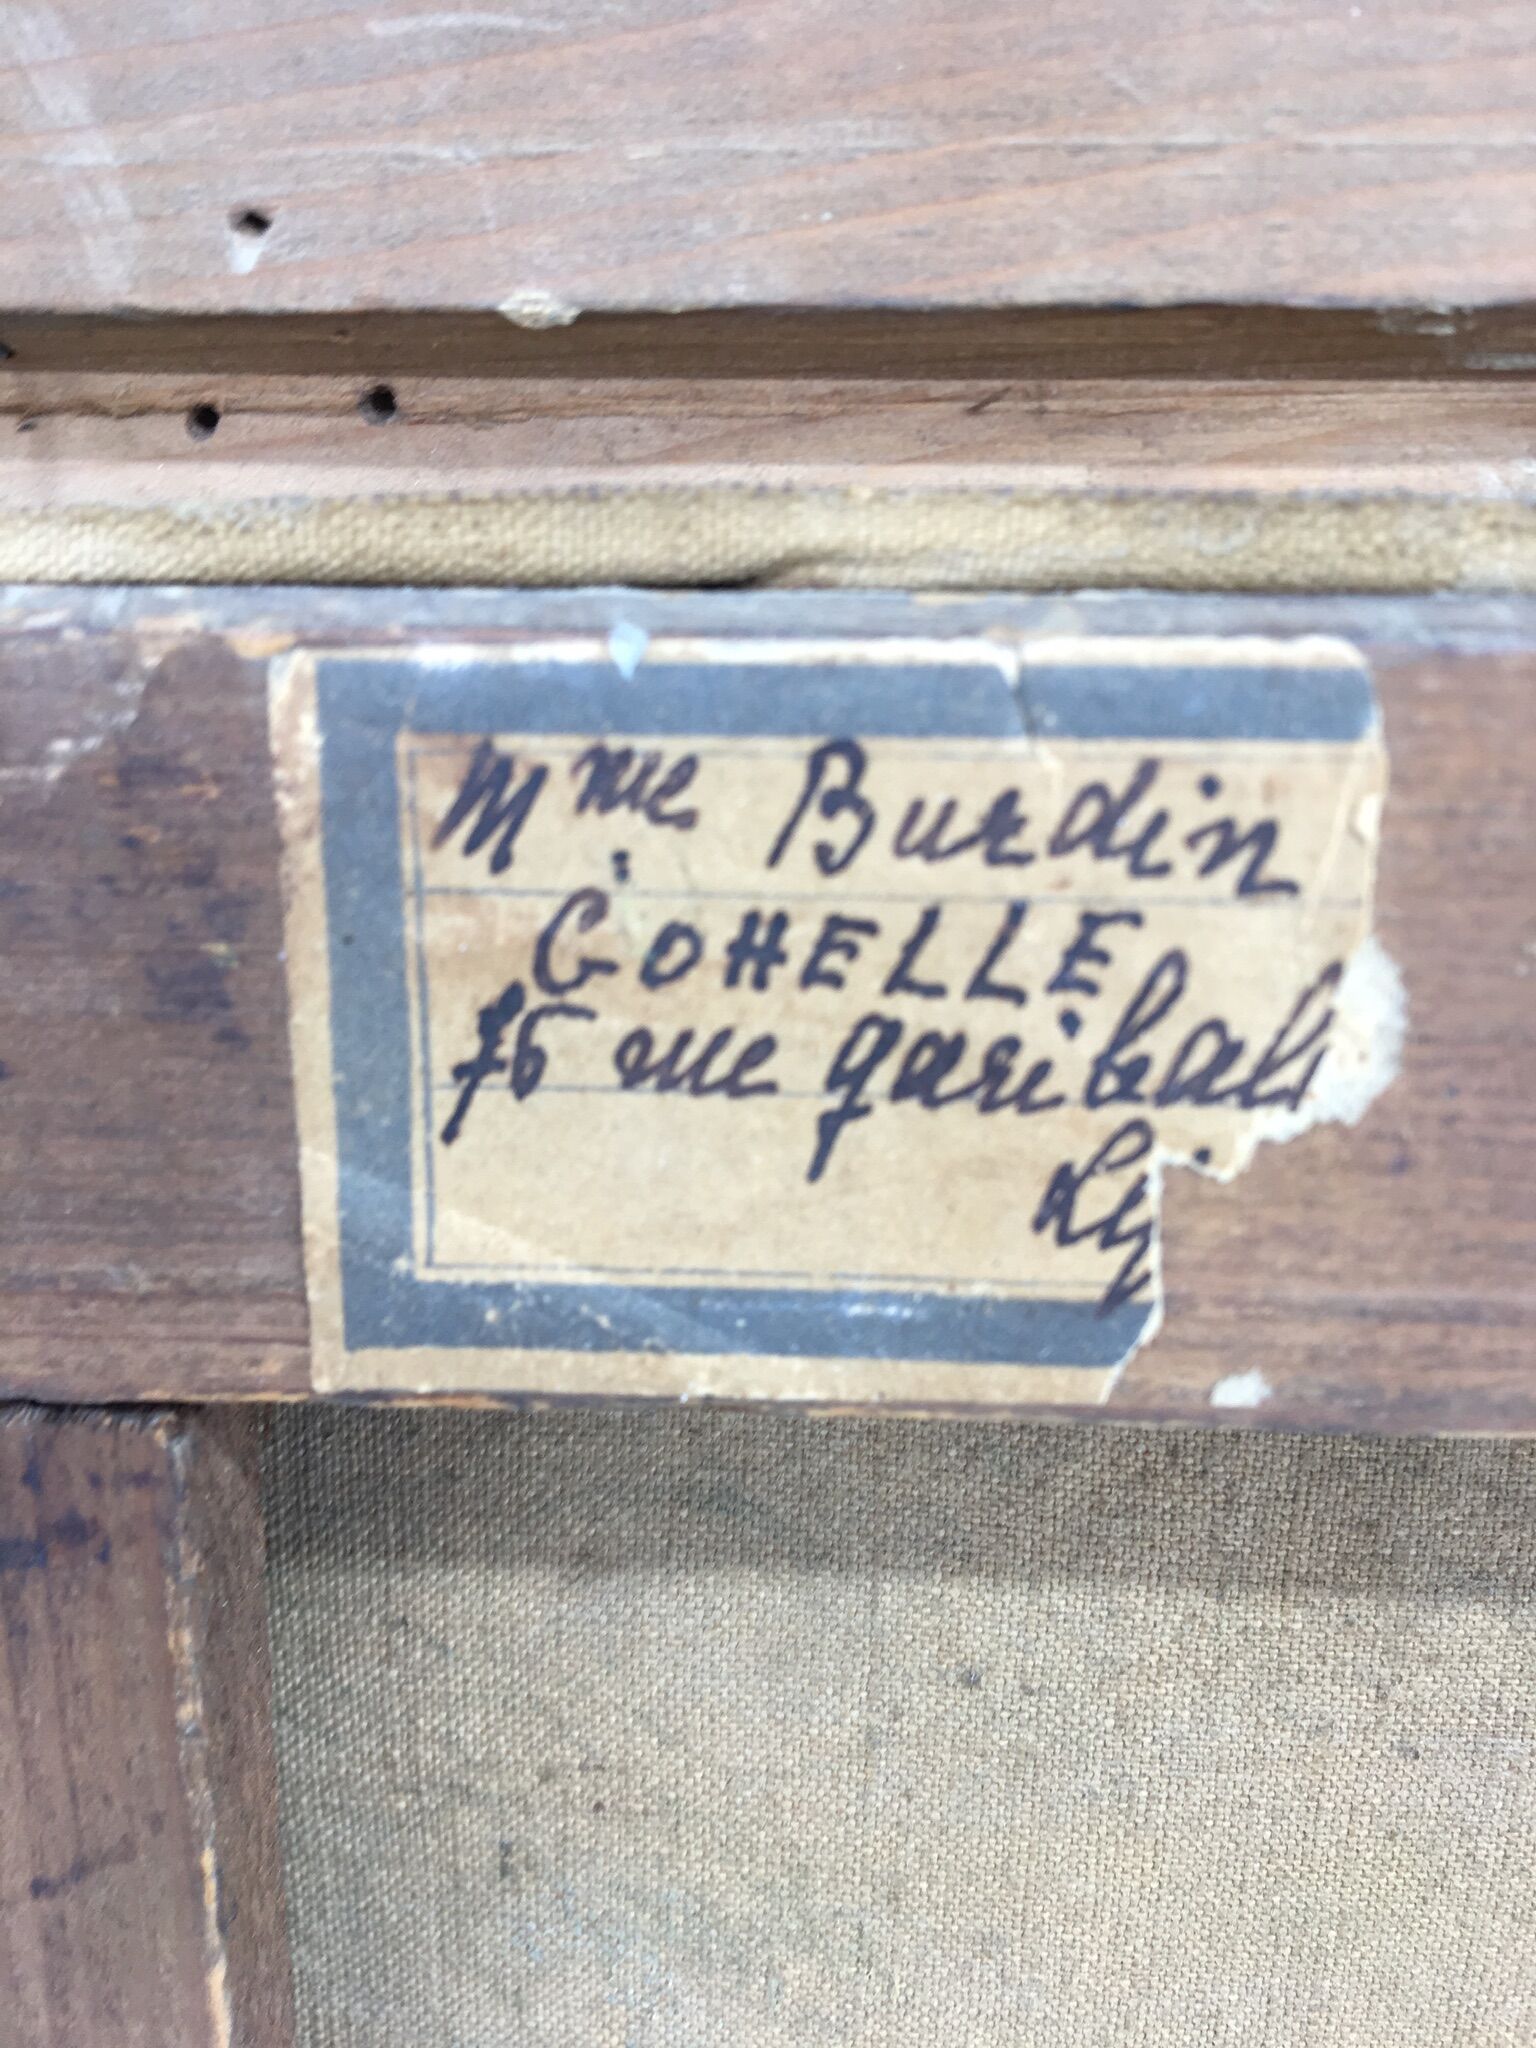 Mme Burdin
GOHELLE
76 rue garibal
Ly